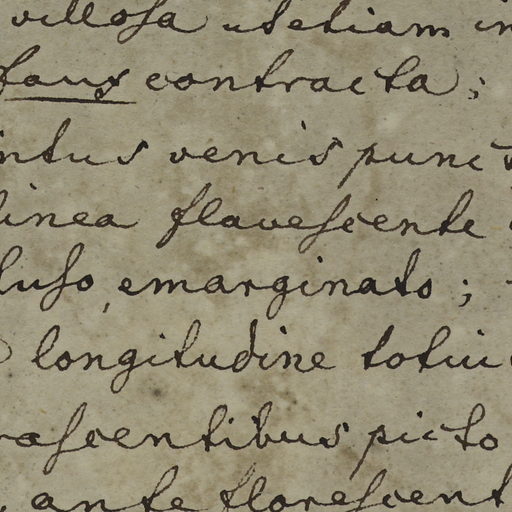 villosa ut etiam in
Faux contracta;
intus venis punct
linea flavescente
luso, emarginato;
longitudine totiu
rascentibus picto
ante florescent